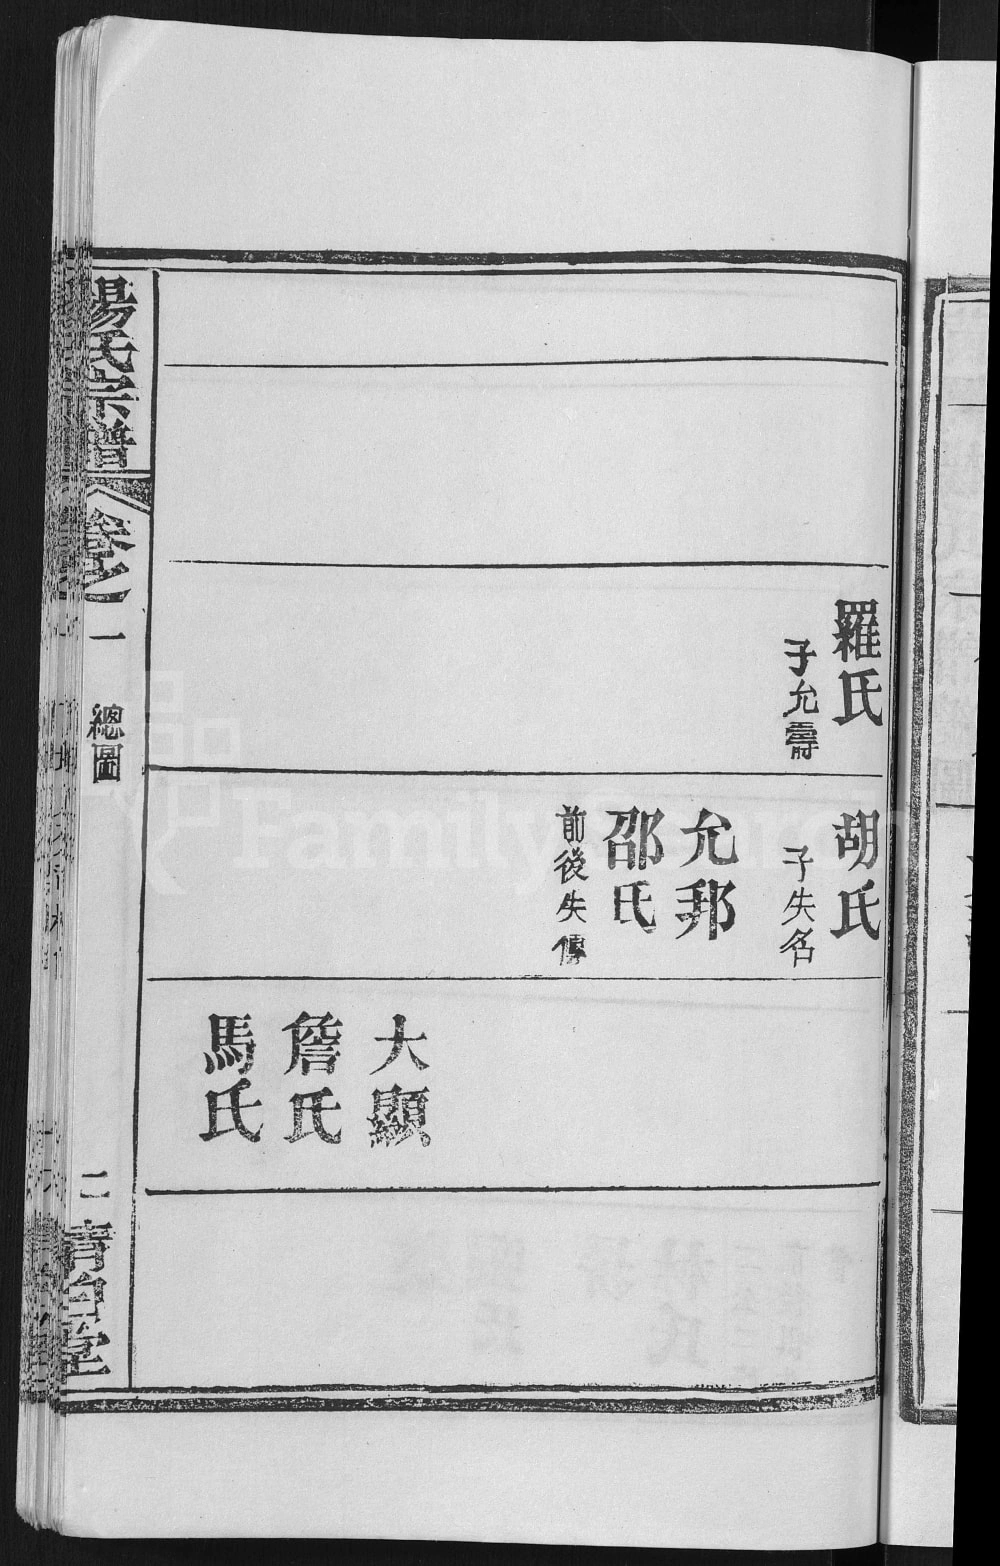 羅氏
子允壽
胡氏
子失名
允邦
邵氏
前後失傳
大顯
詹氏
馬氏
楊氏宗譜
卷之一
總圖
二
清白堂
FamilySearch